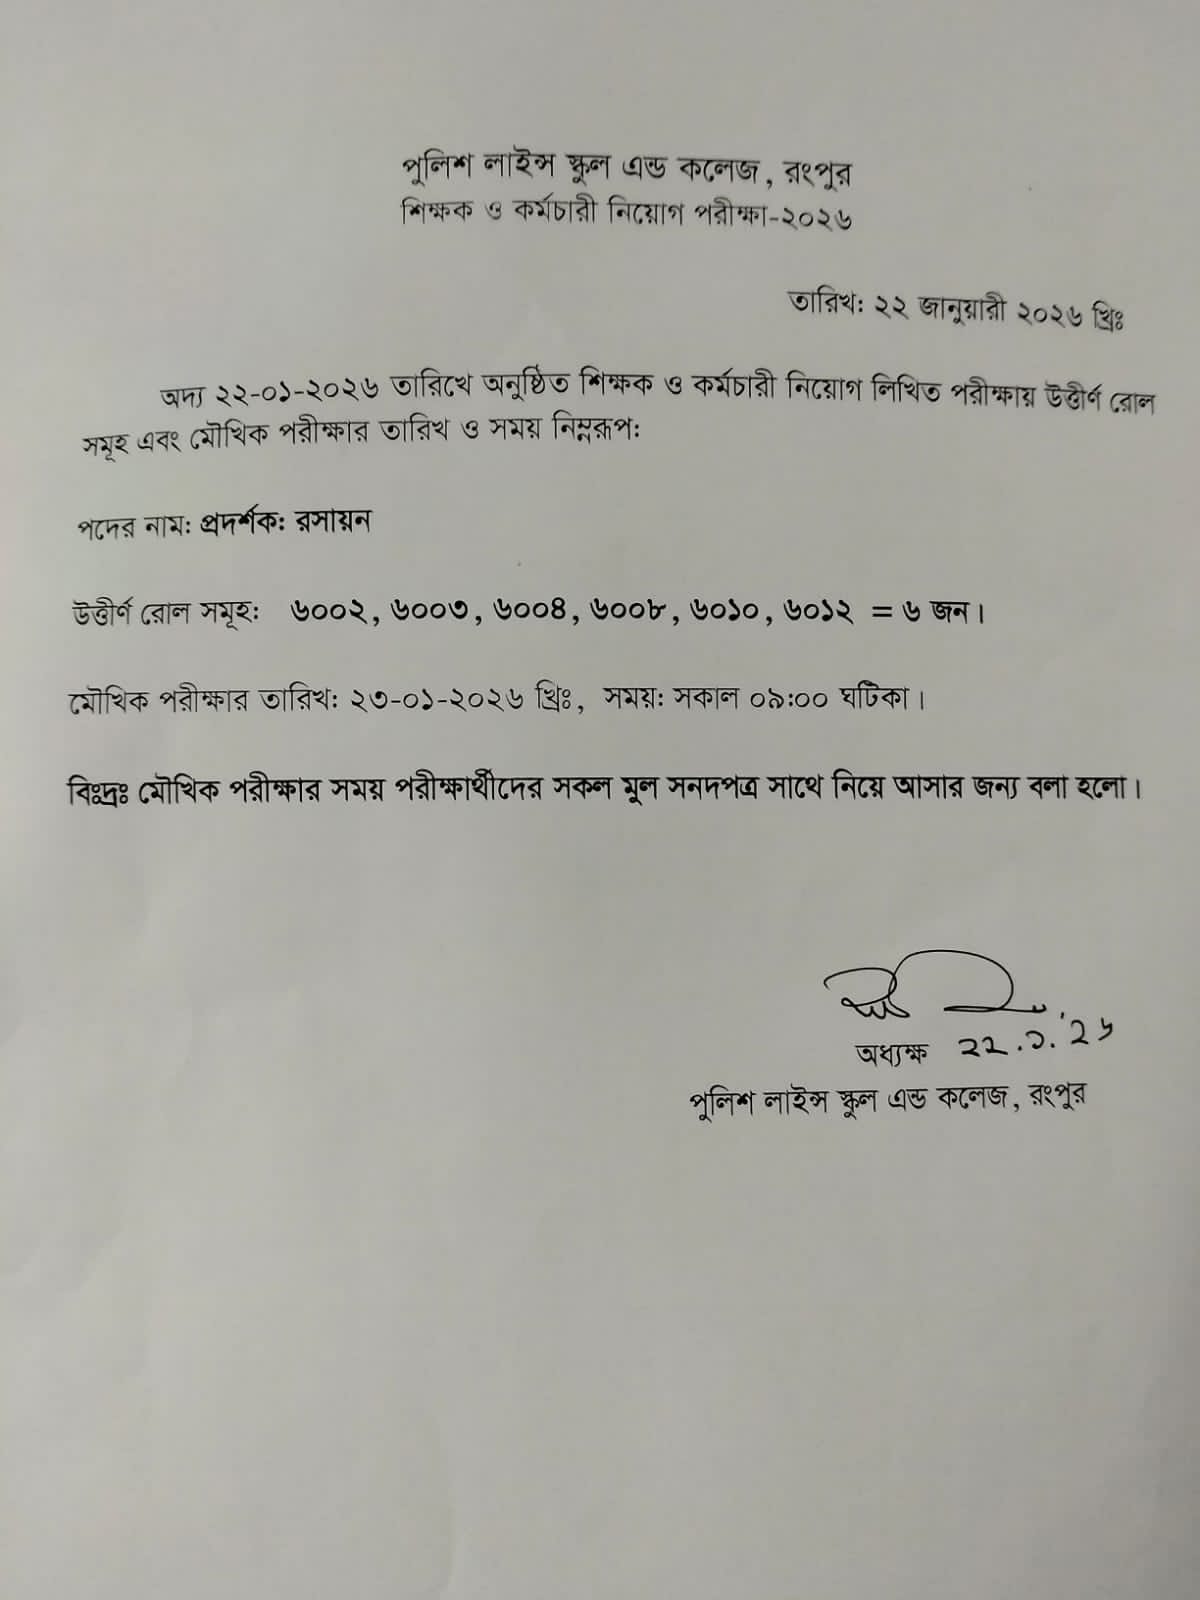 পুলিশ লাইন্স স্কুল এন্ড কলেজ, রংপুর
শিক্ষক ও কর্মচারী নিয়োগ পরীক্ষা-২০২৬
তারিখ: ২২ জানুয়ারী ২০২৬ খ্রিঃ
অদ্য ২২-০১-২০২৬ তারিখে অনুষ্ঠিত শিক্ষক ও কর্মচারী নিয়োগ লিখিত পরীক্ষায় উত্তীর্ণ রোল
সমূহ এবং মৌখিক পরীক্ষার তারিখ ও সময় নিম্নরূপ:
পদের নাম: প্রদর্শক: রসায়ন
উত্তীর্ণ রোল সমূহ: ৬০০২, ৬০০৩, ৬০০৪, ৬০০৮, ৬০১০, ৬০১২ = ৬ জন।
মৌখিক পরীক্ষার তারিখ: ২৩-০১-২০২৬ খ্রিঃ, সময়: সকাল ০৯:০০ ঘটিকা।
বিঃদ্রঃ মৌখিক পরীক্ষার সময় পরীক্ষার্থীদের সকল মুল সনদপত্র সাথে নিয়ে আসার জন্য বলা হলো।
অধ্যক্ষ ২২.১.'২৬
পুলিশ লাইন্স স্কুল এন্ড কলেজ, রংপুর